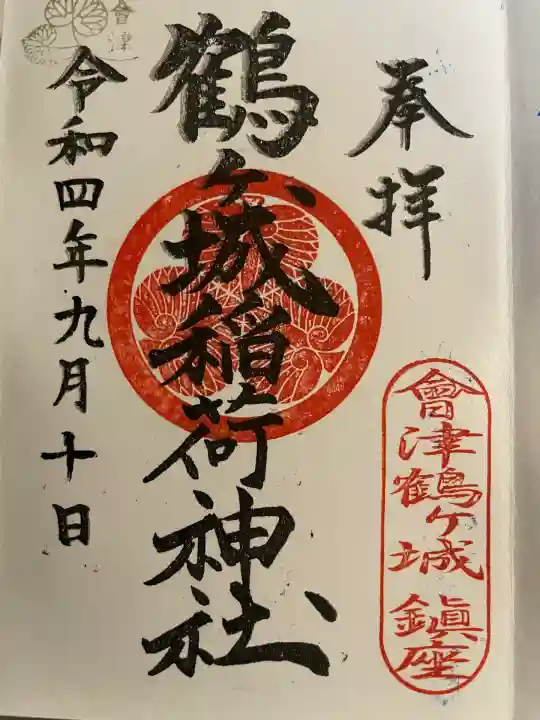 奉拝
會津鶴ヶ城鎮座
鶴ヶ城稲荷神社
令和四年九月十日
會津